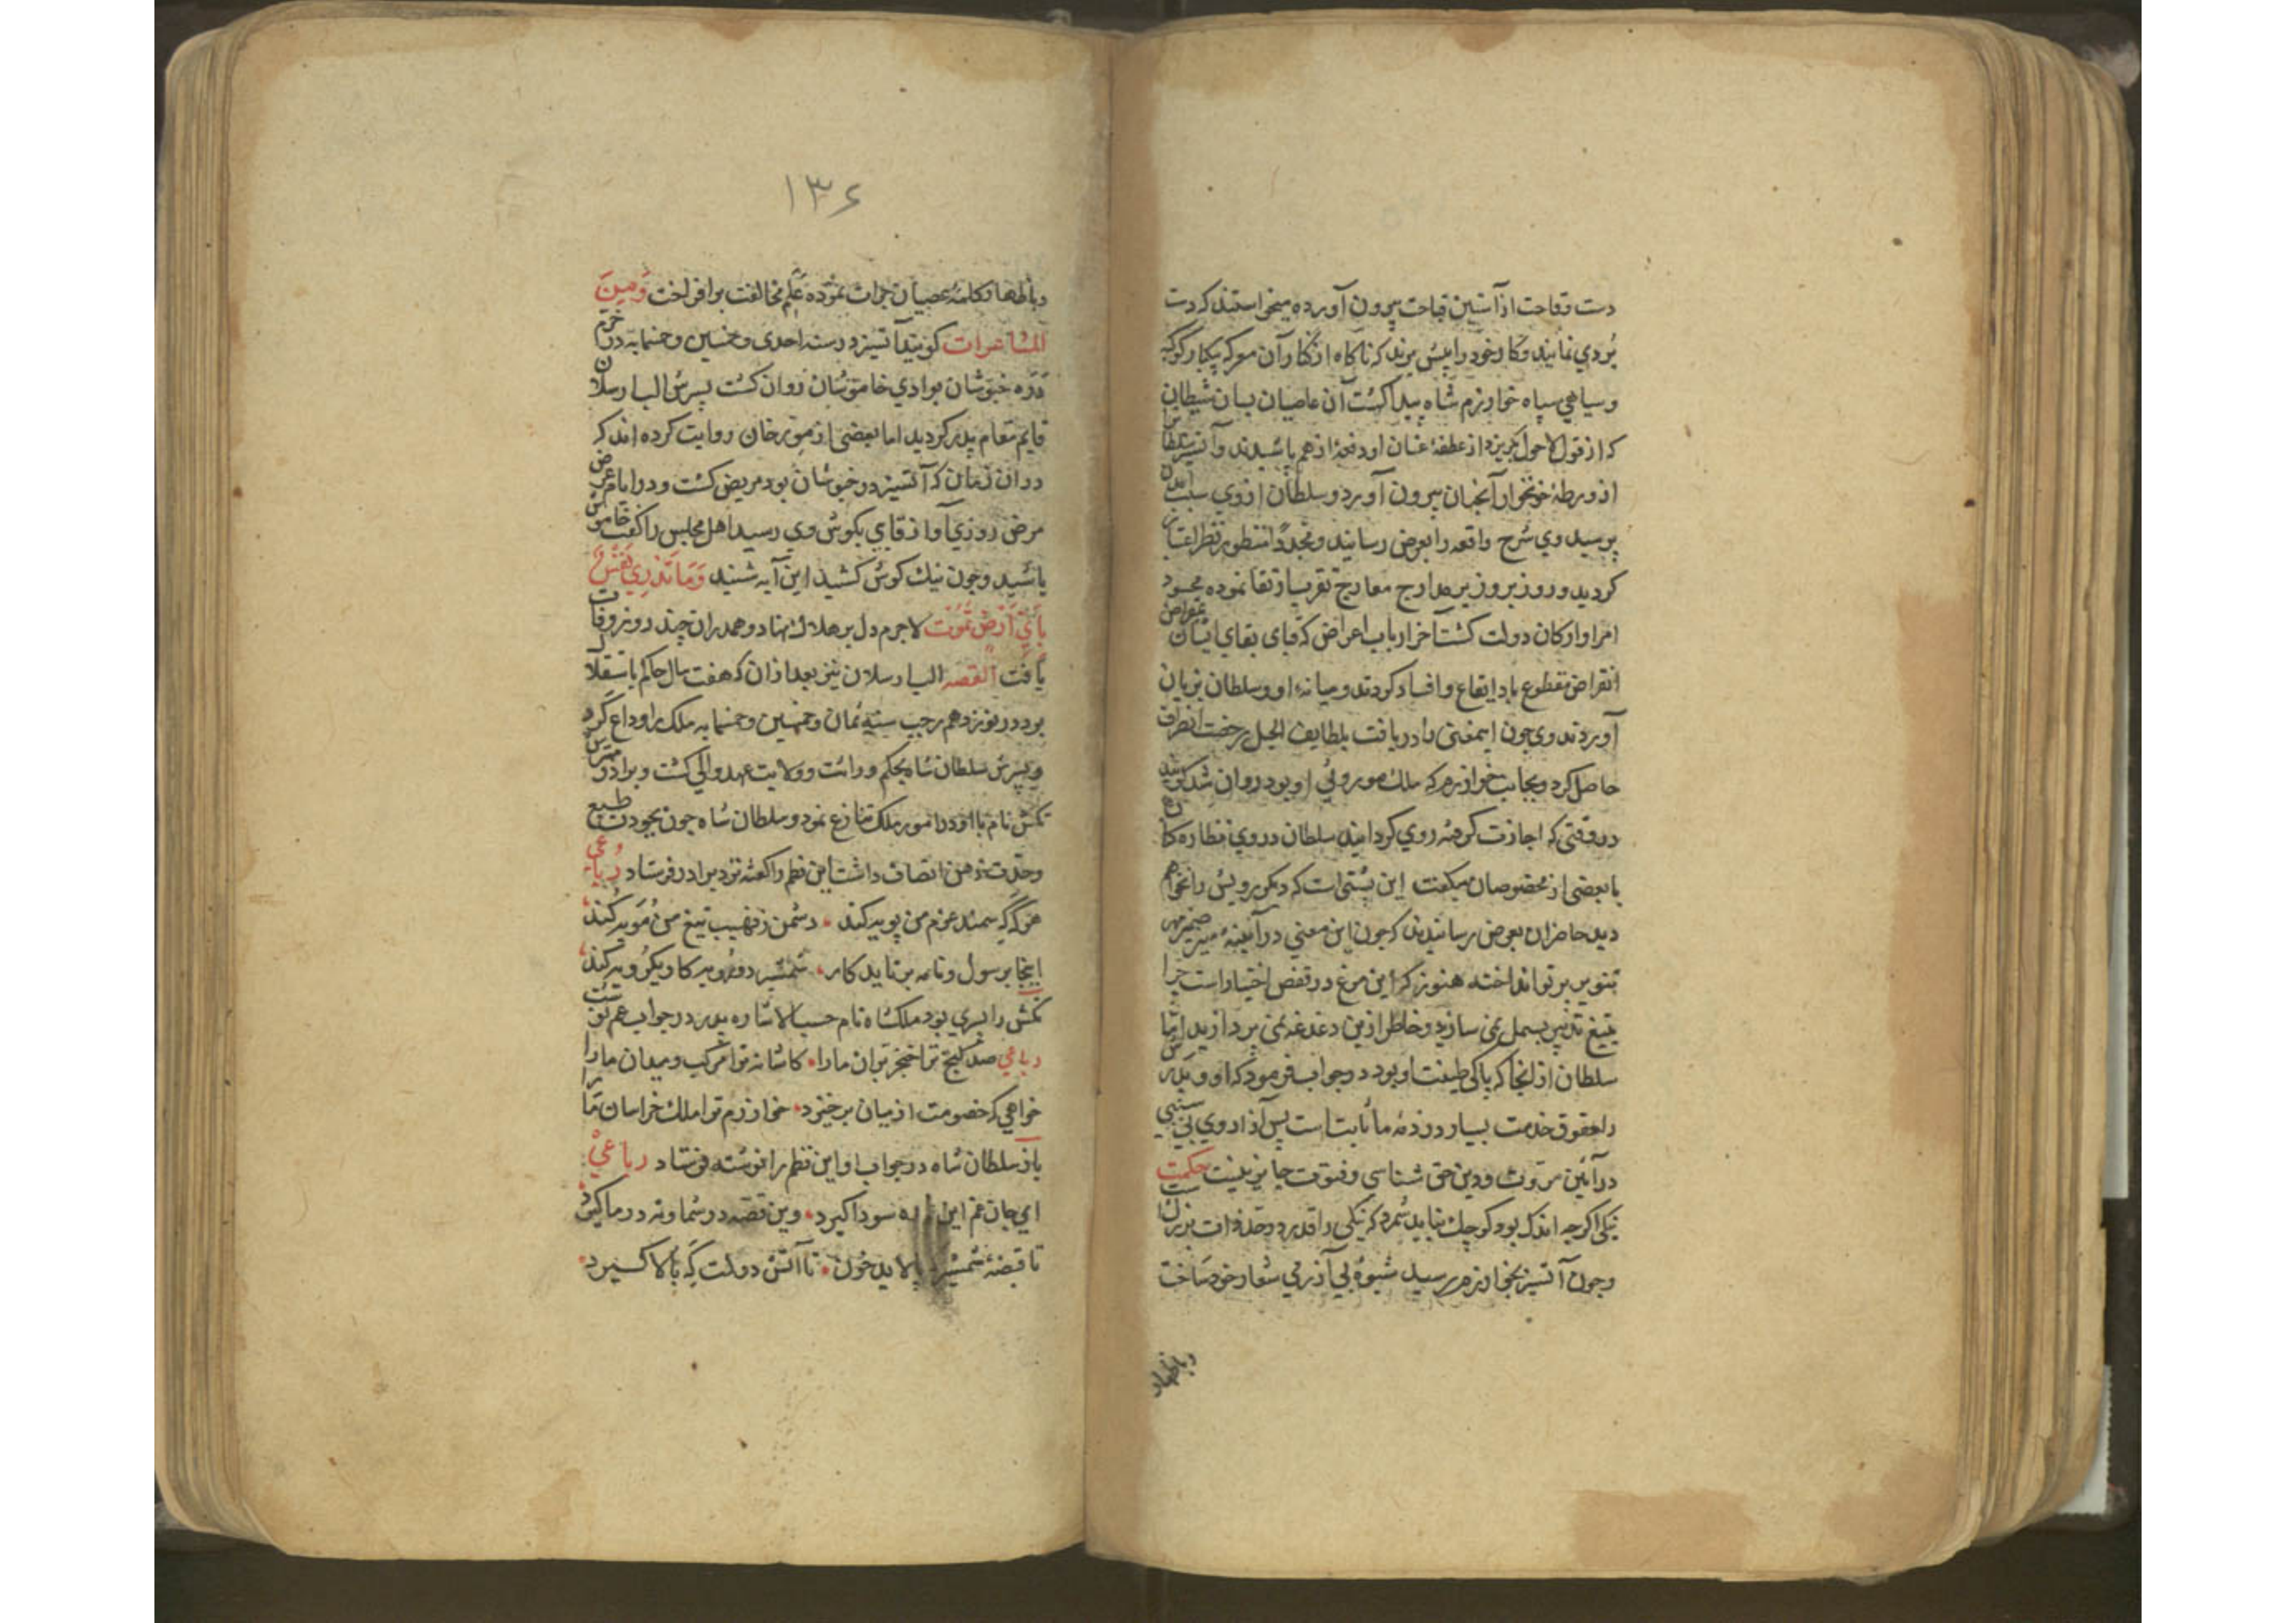 دست وقاحت از آستین قباحت بیرون آورده میخواستند که دست
بردی نمایند و کار خود را پیش برند که ناکاه از کنار آن معرکه پیکبار کوکبه
و سیاهی سپاه خوارزم شاه پیدا کشت آن عاصیان بسان شیطان
که از قول لاحول بکریزد از عطفهٔ عنان او دفعة از هم پاشیدند و آتسیز سلطان را
از ورطهٔ خونخوار آنچنان بیرون آورد و سلطان از وی سبب آمدن
پرسید وی شرح واقعه را بعرض رسانید و مجدداً منظور نظر اعتبار
کردید و روز بروز بر مدارج معارج تقرب ارتقا نموده محسود
امرا و ارکان دولت کشت آخر ارباب اعراض که قبای بقای ایشان بمقراض
انقراض مقطوع باد ایقاع و افساد کردند و میانهٔ او و سلطان بزیان
آوردند وی چون اینمعنی را دریافت بلطایف الحیل رخصت انصراف
حاصل کرد و بجانب خوارزم که ملک موروثی او بود روان شد کویند
در وقتی که اجازت کرفته روی کردانید سلطان در وی نظاره کنان
با بعضی از مخصوصان میکفت این پشتی است که دیکر رویش را نخواهم
دید حاضران بعرض رسانیدند که چون این معنی در آیینهٔ ضمیر مهر
تنویر پرتو انداخته هنوز که این مرغ در قفص اختیار است چرا
بتیغ تدبیر بسمل نمی سازید و خاطر ازین دغدغه نمی پردازید امّا
سلطان از انجا که پاکی طینت او بود در جواب فرمود که او و پدرش
را حقوق خدمت بسیار در ذمهٔ ما ثابت است پس آزار وی بی سببی
در آئین مروت و دین حق شناسی و فتوت جایز نیست حکمت
نیکی اکرچه اندک بود کوچک نباید شمرد که نیکی را قدر در حدّ ذات بزرگ است
و چون آتسیز بخوارزم رسید شیوهٔ بی آزرمی شعار خود ساخت
۱۳۶
و باظهار کلمهٔ عصیان جرات نموده علم مخالفت برافراخت ومن
المشاعرات کویند آتسیز در سنه احدی و خمسین و خمسمایه در خرم
درّه خبوشان بوادی خاموشان روان کشت پسرش الب ارسلان
قایم مقام پدر کردید اما بعضی از مورخان روایت کرده اند که
در ان زمان که آتسیز در خبوشان بود مریض کشت و در ایام عرض
مرض روزی آواز قاری بکوش وی رسید اهل مجلس را کفت خاموش
باشید و چون نیک کوش کشید این آیه شنید وَمَا تَدْرِي نَفْسٌ
بِاَيِّ اَرْضٍ تَمُوتُ لاجرم دل بر هلاک نهاد و همدران چند روز وفات
یافت القصه الب ارسلان نیز بعد از ان که هفت سال حاکم باستقلال
بود در نوزدهم رجب سنه ثمان و خمسین و خمسمایه ملک را وداع کرد
و پسرش سلطان شاه بحکم وراثت و ولایت عهد والی کشت و برادر مهترش
تکش نام با او در امور ملک تنازع نمود و سلطان شاه چون بجودت طبع
و حدّت ذهن اتصاف داشت این نظم را کفته نزد برادر فرستاد رباعی
هر که که سمند عزم من پویه کند دشمن ز نهیب تیغ من مویه کند
اینجا برسول و نامه بر ناید کار شمشیر دورویه کار یکرویه کند
تکش را پسری بود ملکشاه نام حسب الاشاره پدر در جواب عم نوشت
رباعی صد کنج ترا خنجر بران ما را کاشانه ترا مرکب و میدان ما را
خواهی که خصومت از میان برخیزد خوارزم ترا ملک خراسان ما را
باز سلطان شاه در جواب او این نظم را نوشته فرستاد رباعی
ای جان عم این ره سودا کیرد وین قصه در شما و نه در ما کیرد
تا قبضهٔ شمشیر بالاید خون تا آتش دولت که بالا کیرد